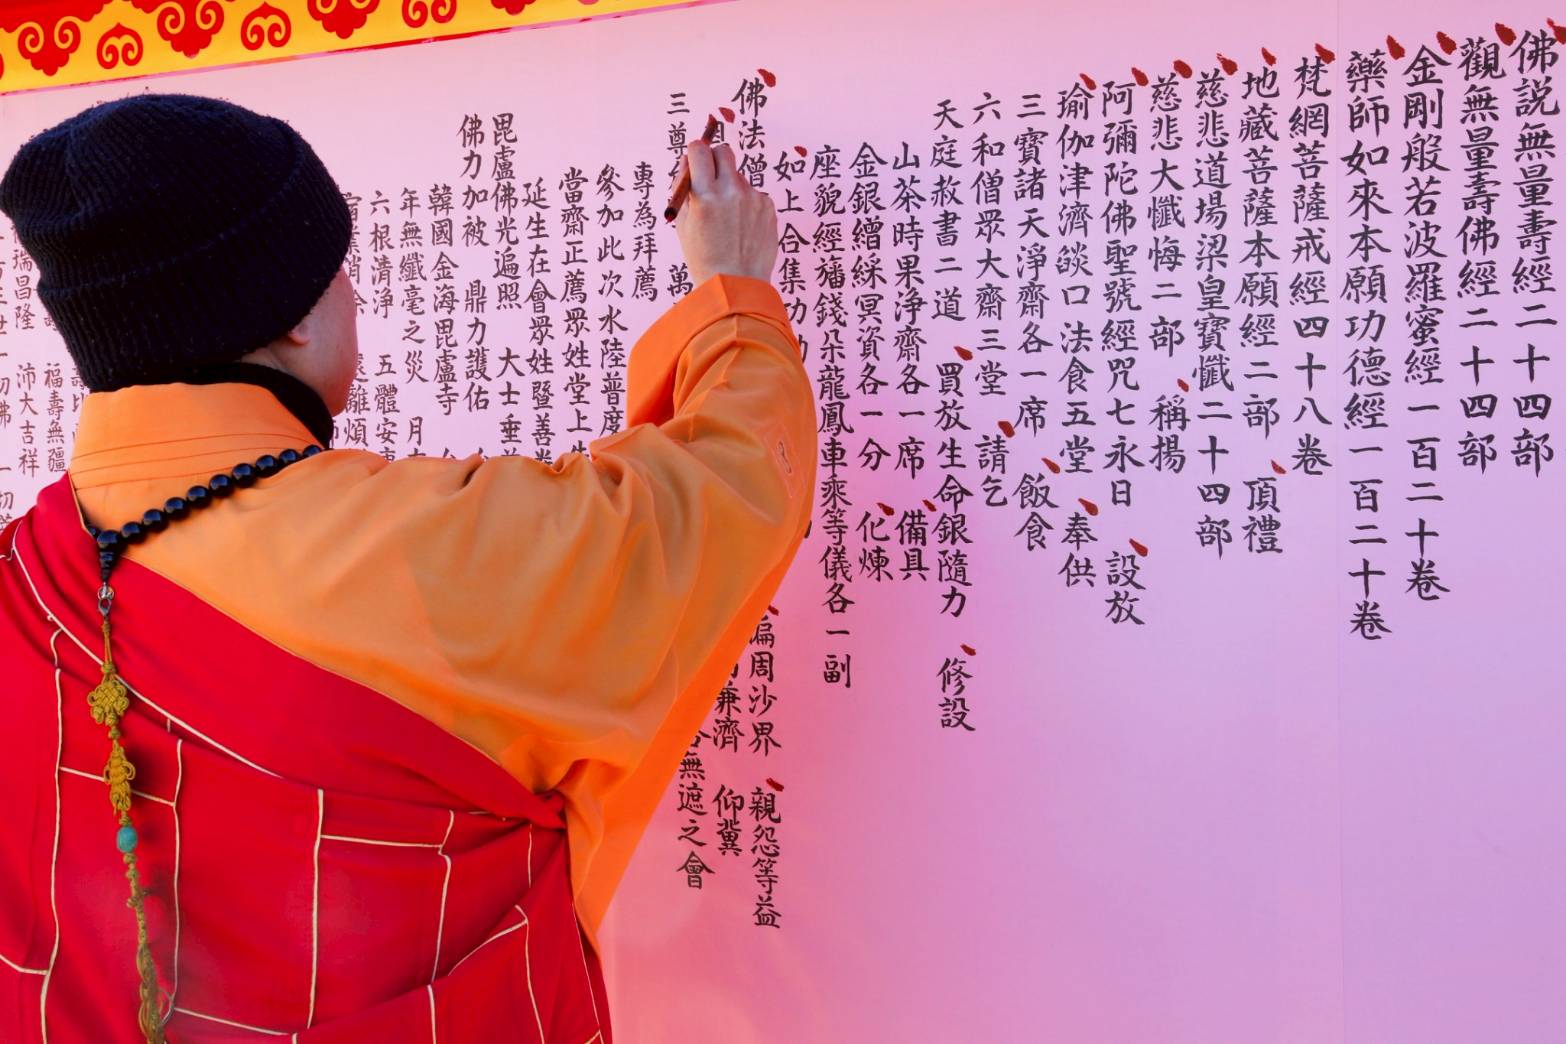 佛説無量壽經二十四部
觀無量壽佛經二十四部
金剛般若波羅蜜經一百二十卷
藥師如來本願功德經一百二十卷
梵網菩薩戒經四十八卷
地藏菩薩本願經二部 頂禮
慈悲道場梁皇寶懺二十四部
慈悲大懺悔二部 稱揚
阿彌陀佛聖號經咒七永日 設放
瑜伽津濟燄口法食五堂 奉供
三寶諸天淨齋各一席 飯食
六和僧眾大齋三堂 請乞
天庭赦書二道 買放生命銀隨力 修設
山茶時果净齋各一席 備具
金銀繒綵冥資各一分 化煉
座貌經旛錢朵龍鳳車乘等儀各一副
如上合集功
佛法僧 徧周沙界 親怨等益
兼濟 仰冀
三尊 萬 無遮之會
專為拜薦
參加此次水陸普度
當齋正薦眾姓堂上
延生在會眾姓暨善
毘盧佛光遍照 大士垂
佛力加被 鼎力護佑
韓國金海毘盧寺
年無纖毫之災 月
六根清淨 五體安
福壽無疆
瑞昌隆 沛大吉祥
切佛 一切